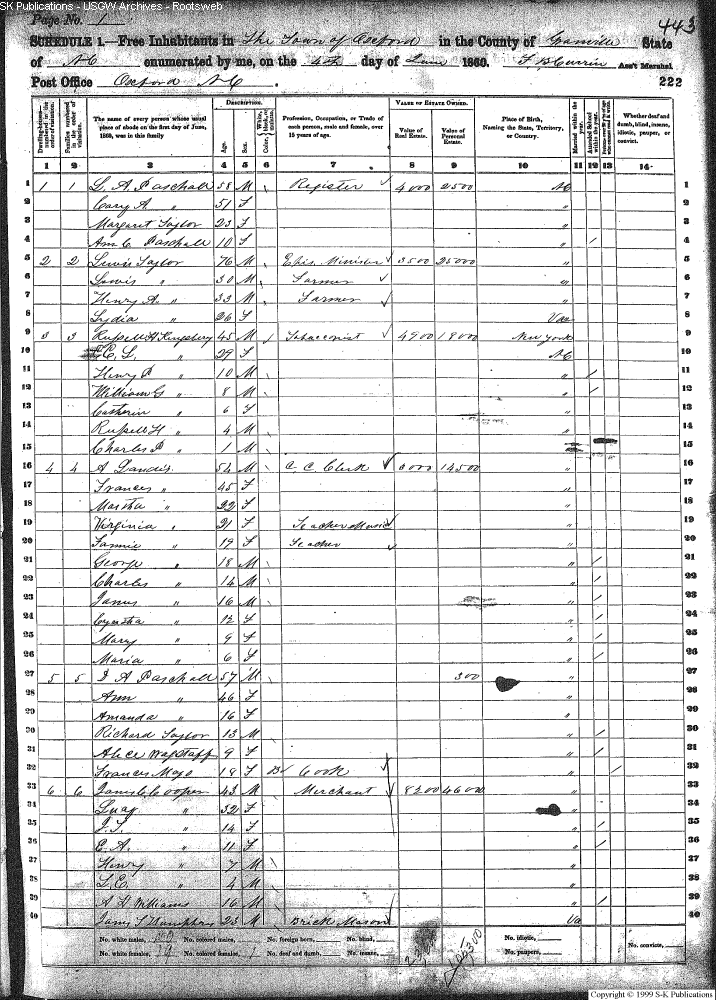 SK Publications - USGW Archives - Rootsweb
Page No. 1
443
SCHEDULE 1.—Free Inhabitants in The Town of Oxford in the County of Granville State
of NC enumerated by me, on the 4th day of June 1860. F B Currin Ass't Marshal
Post Office Oxford NC. 222
Dwelling-houses numbered in the order of visitation. Families numbered in the order of visitation. The name of every person whose usual place of abode on the first day of June, 1860, was in this family Description. Age. Sex. Color, Profession, Occupation, or Trade of each person, male and female, over 15 years of age. Value of Estate Owned. Value of Real Estate. Value of Personal Estate. Place of Birth, Naming the State, Territory, or Country. Married within the year. Attended School within the year. Whether deaf and dumb, blind, insane, idiotic, pauper, or convict.
1 2 3 4 5 6 7 8 9 10 11 12 13 14
1 1 1 L. A. Paschall 58 M Register 4000 2500 NC 1
2 Cary A. " 51 F " 2
3 Margaret Taylor 23 F " 3
4 Ann C Paschall 10 F " / 4
5 2 2 Lewis Taylor 76 M Epis. Minister 3500 25000 " 5
6 Lewis " 30 M Farmer " 6
7 Henry A. " 33 M Farmer " 7
8 Lydia " 26 F Va 8
9 3 3 Russell H Kingsbury 45 M Tobacconist 4900 18000 New York 9
10 C. L. " 29 F NC 10
11 Henry P " 10 M " / 11
12 William G " 8 M " / 12
13 Catherin " 6 F " 13
14 Russell H " 4 M " 14
15 Charles P " 1 M " 15
16 4 4 A Landis 54 M C. C. Clerk 14500 " 16
17 Frances " 45 F " 17
18 Martha " 22 F " 18
19 Virginia " 21 F Teacher Music " 19
20 Fannie " 19 F Teacher " 20
21 George " 18 M " / 21
22 Charles " 14 M " / 22
23 James " 16 M " / 23
24 " 12 F " / 24
25 Mary " 9 F " / 25
26 Maria " 6 F " / 26
27 5 5 A Paschall 57 M 300 " 27
28 Ann " 46 F " 28
29 Amanda " 16 F " 29
30 Richard Taylor 13 M " / 30
31 Alice Wagstaff 9 F " / 31
32 Frances Mayo 18 F B Cook " / 32
33 6 6 James C Cooper 43 M Merchant 8200 46000 " 33
34 " 32 F 34
35 " 14 F " / 35
36 E. A. " 11 F " / 36
37 Henry " 7 M " 37
38 " 4 M " 38
39 Williams 16 M " / 39
40 James T Humphrey 23 M Brick Mason Va 40
No. white males, No. colored males, No. foreign born, No. blind, No. idiotic, No. convicts,
No. white females, No. colored females, 1 No. deaf and dumb, No. insane, No. paupers,
Copyright © 1999 S-K Publications